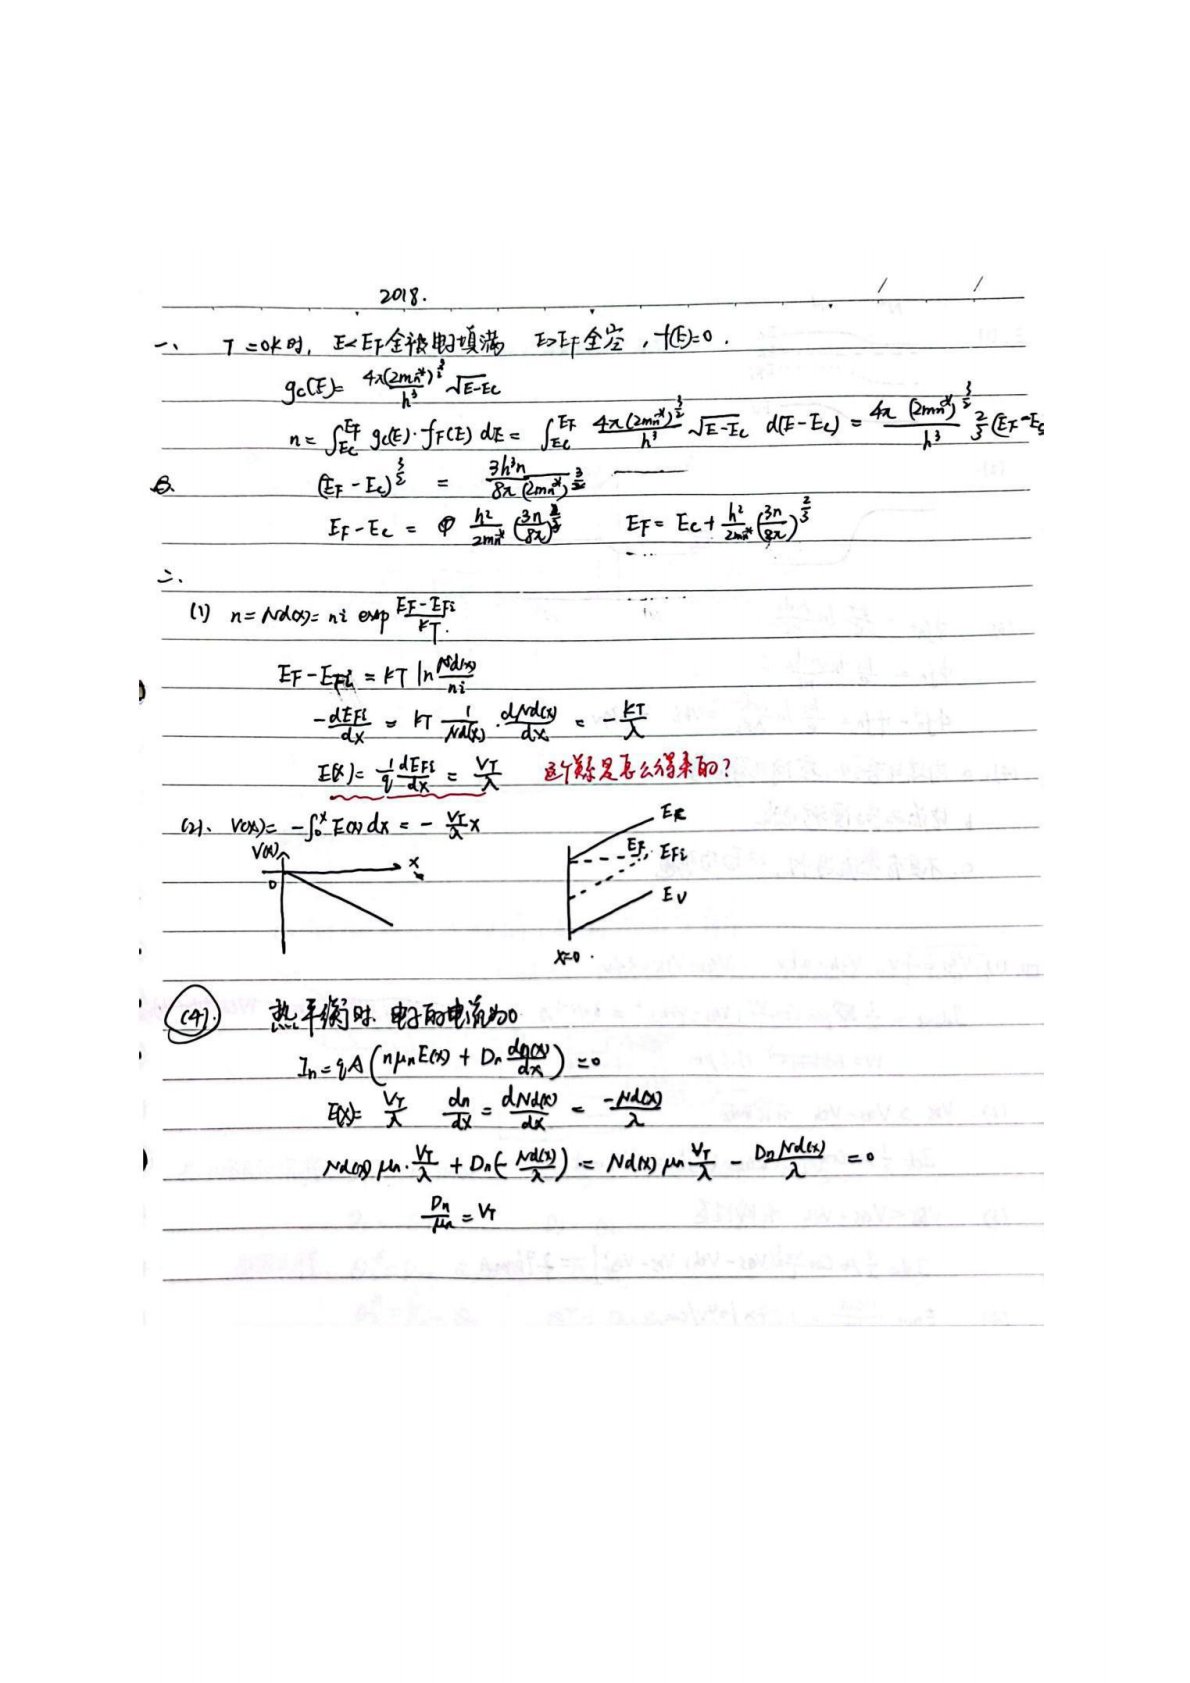 2018.
一、 T=0K时, E<EF全被电子填满 E>EF全空, f(E)=0.
gc(E)= 4π(2mn*)^(3/2)/h³ √E-Ec
n= ∫_Ec^EF gc(E)·fF(E) dE = ∫_Ec^EF 4π(2mn*)^(3/2)/h³ √E-Ec d(E-Ec) = 4π(2mn*)^(3/2)/h³ 2/3 (EF-Ec
(EF-Ec)^(3/2) = 3h³n/8π(2mn*)^(3/2)
EF-Ec = h²/2mn* (3n/8π)^(2/3) EF= Ec+ h²/2mn* (3n/8π)^(2/3)
二、
(1) n= Nd(x)= ni exp EF-EFi/KT.
EF-EFi = KT ln Nd(x)/ni
-dEFi/dx = KT 1/Nd(x) · dNd(x)/dx = - KT/λ
E(x)= 1/q dEFi/dx = VT/λ 这个关系是怎么得来的?
(2). V(x)= -∫_0^x E(x) dx = - VT/λ x
V(x) x 0
Ec
EF EFi
Ev
x=0.
(4). 热平衡时. 电子的电流为0
In= qA(nμnE(x) + Dn dn(x)/dx) =0
E(x)= VT/λ dn/dx = dNd(x)/dx = -Nd(x)/λ
Nd(x) μn· VT/λ + Dn(- Nd(x)/λ) = Nd(x) μn VT/λ - DnNd(x)/λ =0
Dn/μn = VT